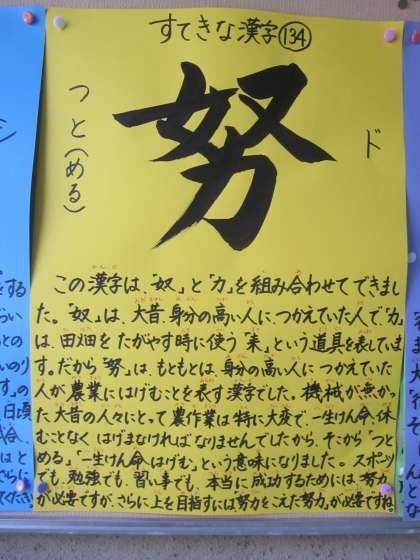 すてきな漢字134
努
つと(める)
ド
この漢字は、"奴"と"力"を組み合わせてできまし
た。"奴"は、大昔、身分の高い人に、つかえていた人で"力"
は、田畑をたがやす時に使う"耒"という道具を表していま
す。だから"努"は、もともとは、身分の高い人につかえていた
人が農業にはげむことを表す漢字でした。機械が無かっ
た大昔の人々にとって農作業は特に大変で、一生けん命、休
むことなくはげまなければなりませんでしたから、そこから"つと
める"、"一生けん命、はげむ"という意味になりました。スポーツ
でも、勉強でも、習い事でも、本当に成功するためには"努力"
が必要ですが、さらに上を目指すには"努力をこえた努力"が必要ですね